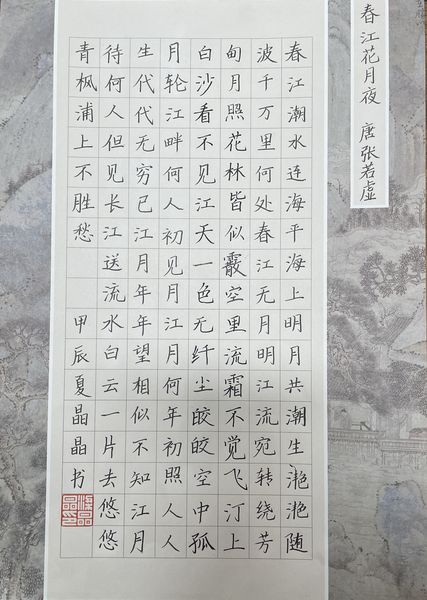 春江花月夜 唐 张若虚
春江潮水连海平海上明月共潮生滟滟随
波千万里何处春江无月明江流宛转绕芳
甸月照花林皆似霰空里流霜不觉飞汀上
白沙看不见江天一色无纤尘皎皎空中孤
月轮江畔何人初见月江月何年初照人人
生代代无穷已江月年年望相似不知江月
待何人但见长江送流水白云一片去悠悠
青枫浦上不胜愁 甲辰夏晶晶书